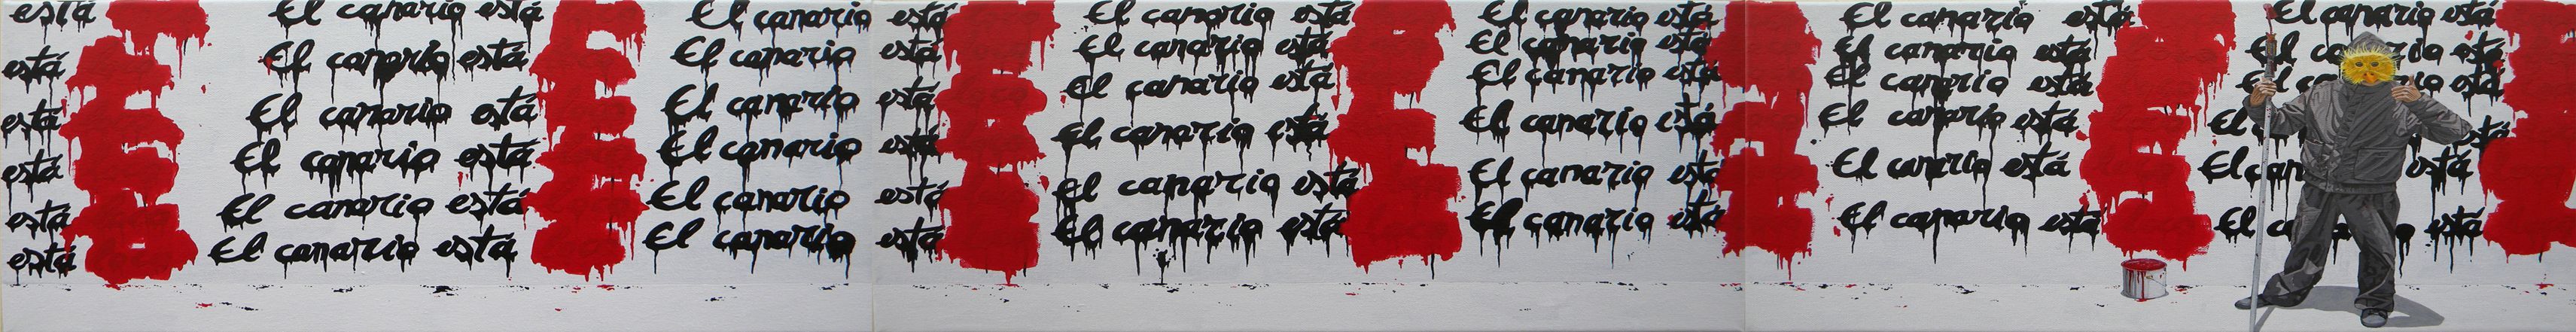 está El canario está El canario está El canario está El canario está El canario está El canario está
está El canario está El canario está El canario está El canario está El canario está El está
está El canario está El canario está El canario está El canario está El canario está El está
está El canario está El canario está El canario está El canario está El canario está El está
está El canario está El canario está El canario está El canario está El canario está El está
está El canario está El canario está El canario está El canario está El canario está El está